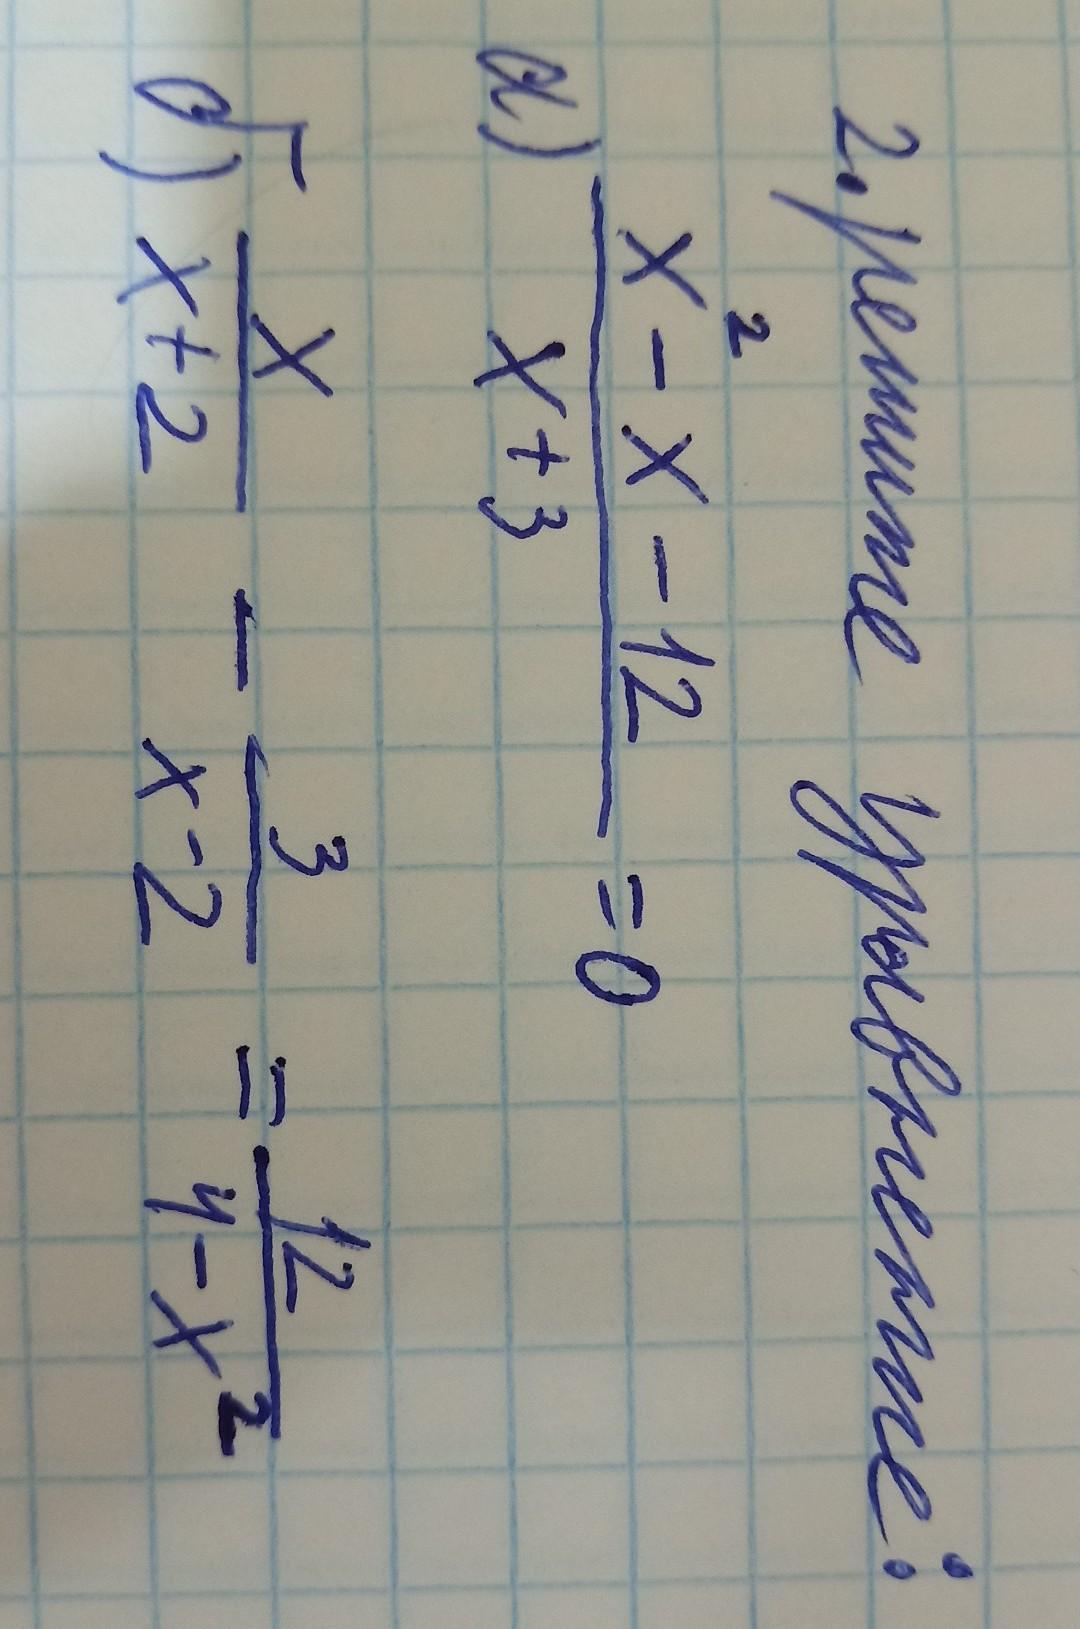 2. решите уравнение:
а) (x² - x - 12)/(x + 3) = 0
б) x/(x+2) - 3/(x-2) = 12/(4-x²)